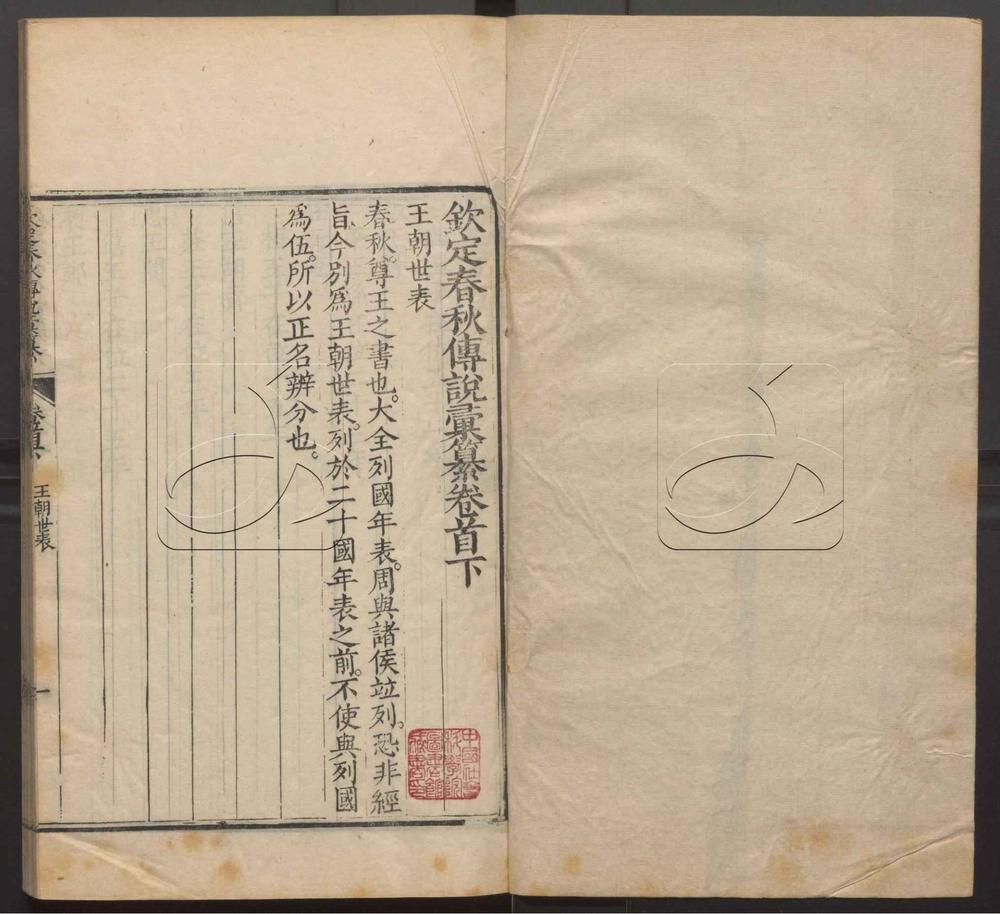 欽定春秋傳說彙纂卷首下
王朝世表
春秋。尊王之書也。大全列國年表。周與諸侯竝列。恐非經
旨。今別爲王朝世表。列於二十國年表之前。不使與列國
爲伍。所以正名辨分也。
王朝世表
一